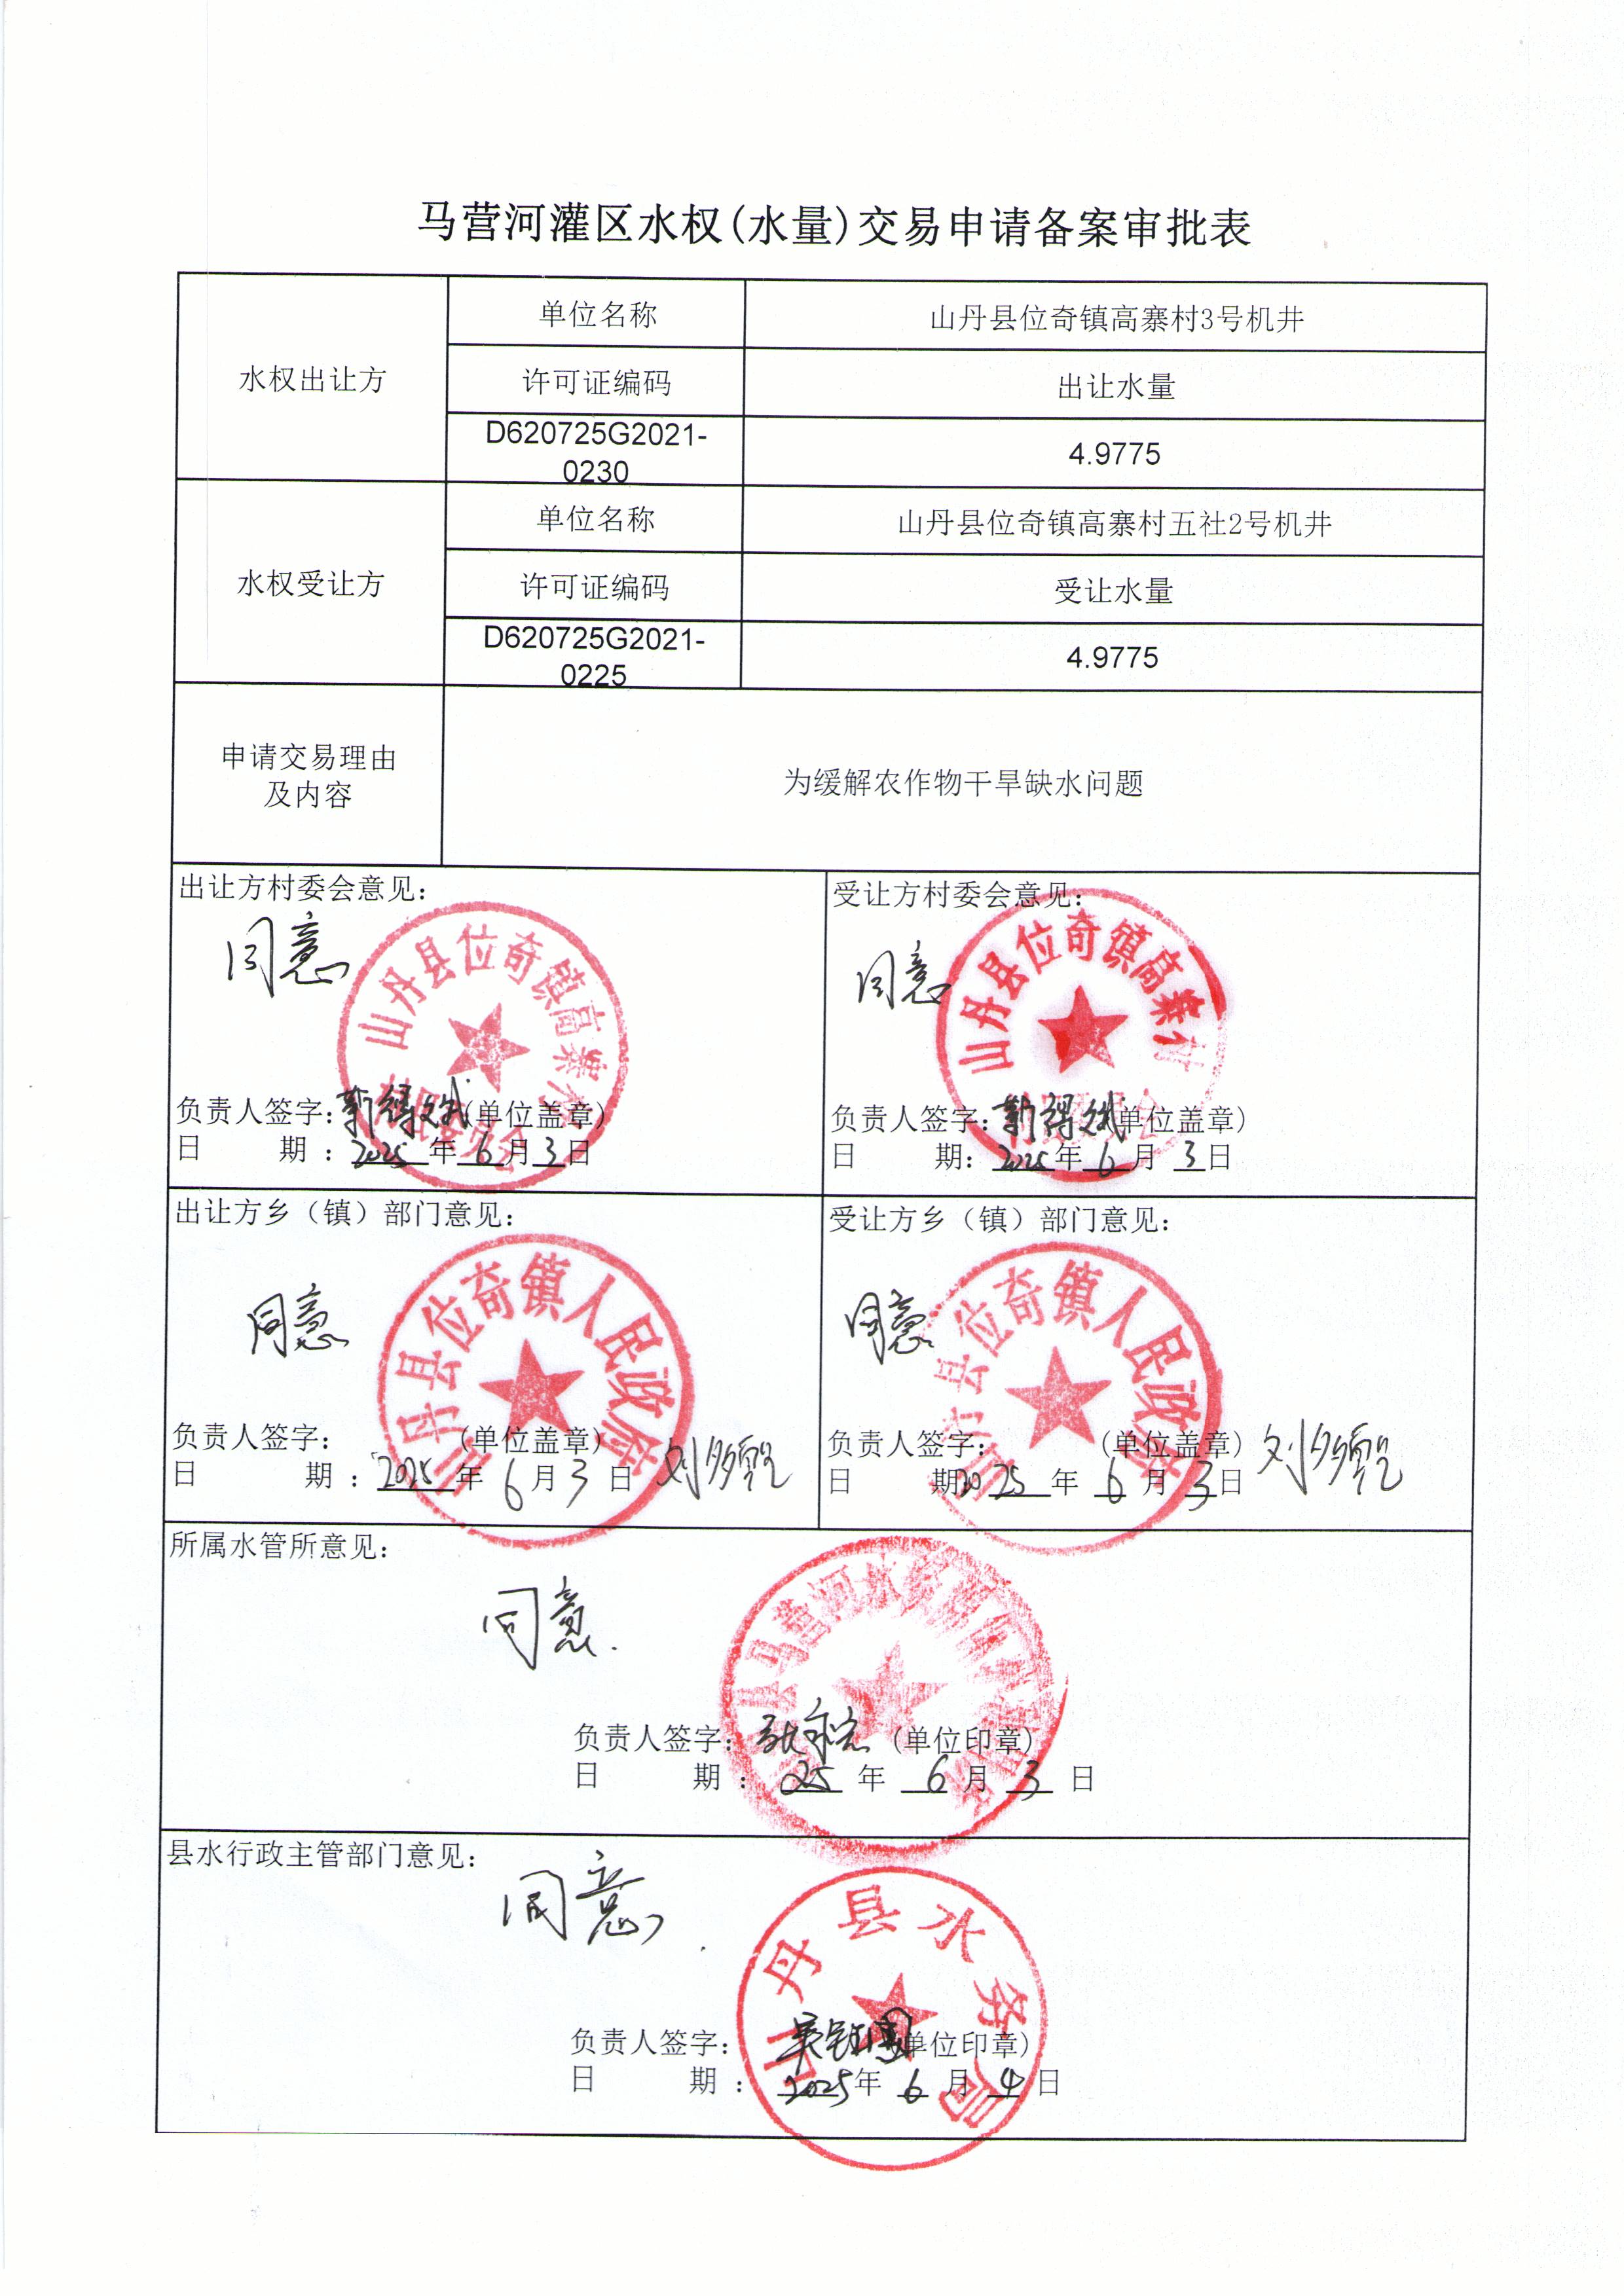 马营河灌区水权(水量)交易申请备案审批表
水权出让方
单位名称
山丹县位奇镇高寨村3号机井
许可证编码
出让水量
D620725G2021-
0230
4.9775
水权受让方
单位名称
山丹县位奇镇高寨村五社2号机井
许可证编码
受让水量
D620725G2021-
0225
4.9775
申请交易理由
及内容
为缓解农作物干旱缺水问题
出让方村委会意见：
同意
山丹县位奇镇高寨村
村民委员会
负责人签字：(单位盖章)
日 期：2025年6月3日
受让方村委会意见：
同意
山丹县位奇镇高寨村
负责人签字：(单位盖章)
日 期：2025年6月3日
出让方乡（镇）部门意见：
同意
山丹县位奇镇人民政府
负责人签字： (单位盖章)
日 期：2025年6月3日
受让方乡（镇）部门意见：
同意
山丹县位奇镇人民政府
负责人签字： (单位盖章)
日 期2025年6月3日
所属水管所意见：
同意.
负责人签字： (单位印章)
日 期：25年6月3日
县水行政主管部门意见：
同意
山丹县水务局
负责人签字： 单位印章)
日 期：2025年6月4日